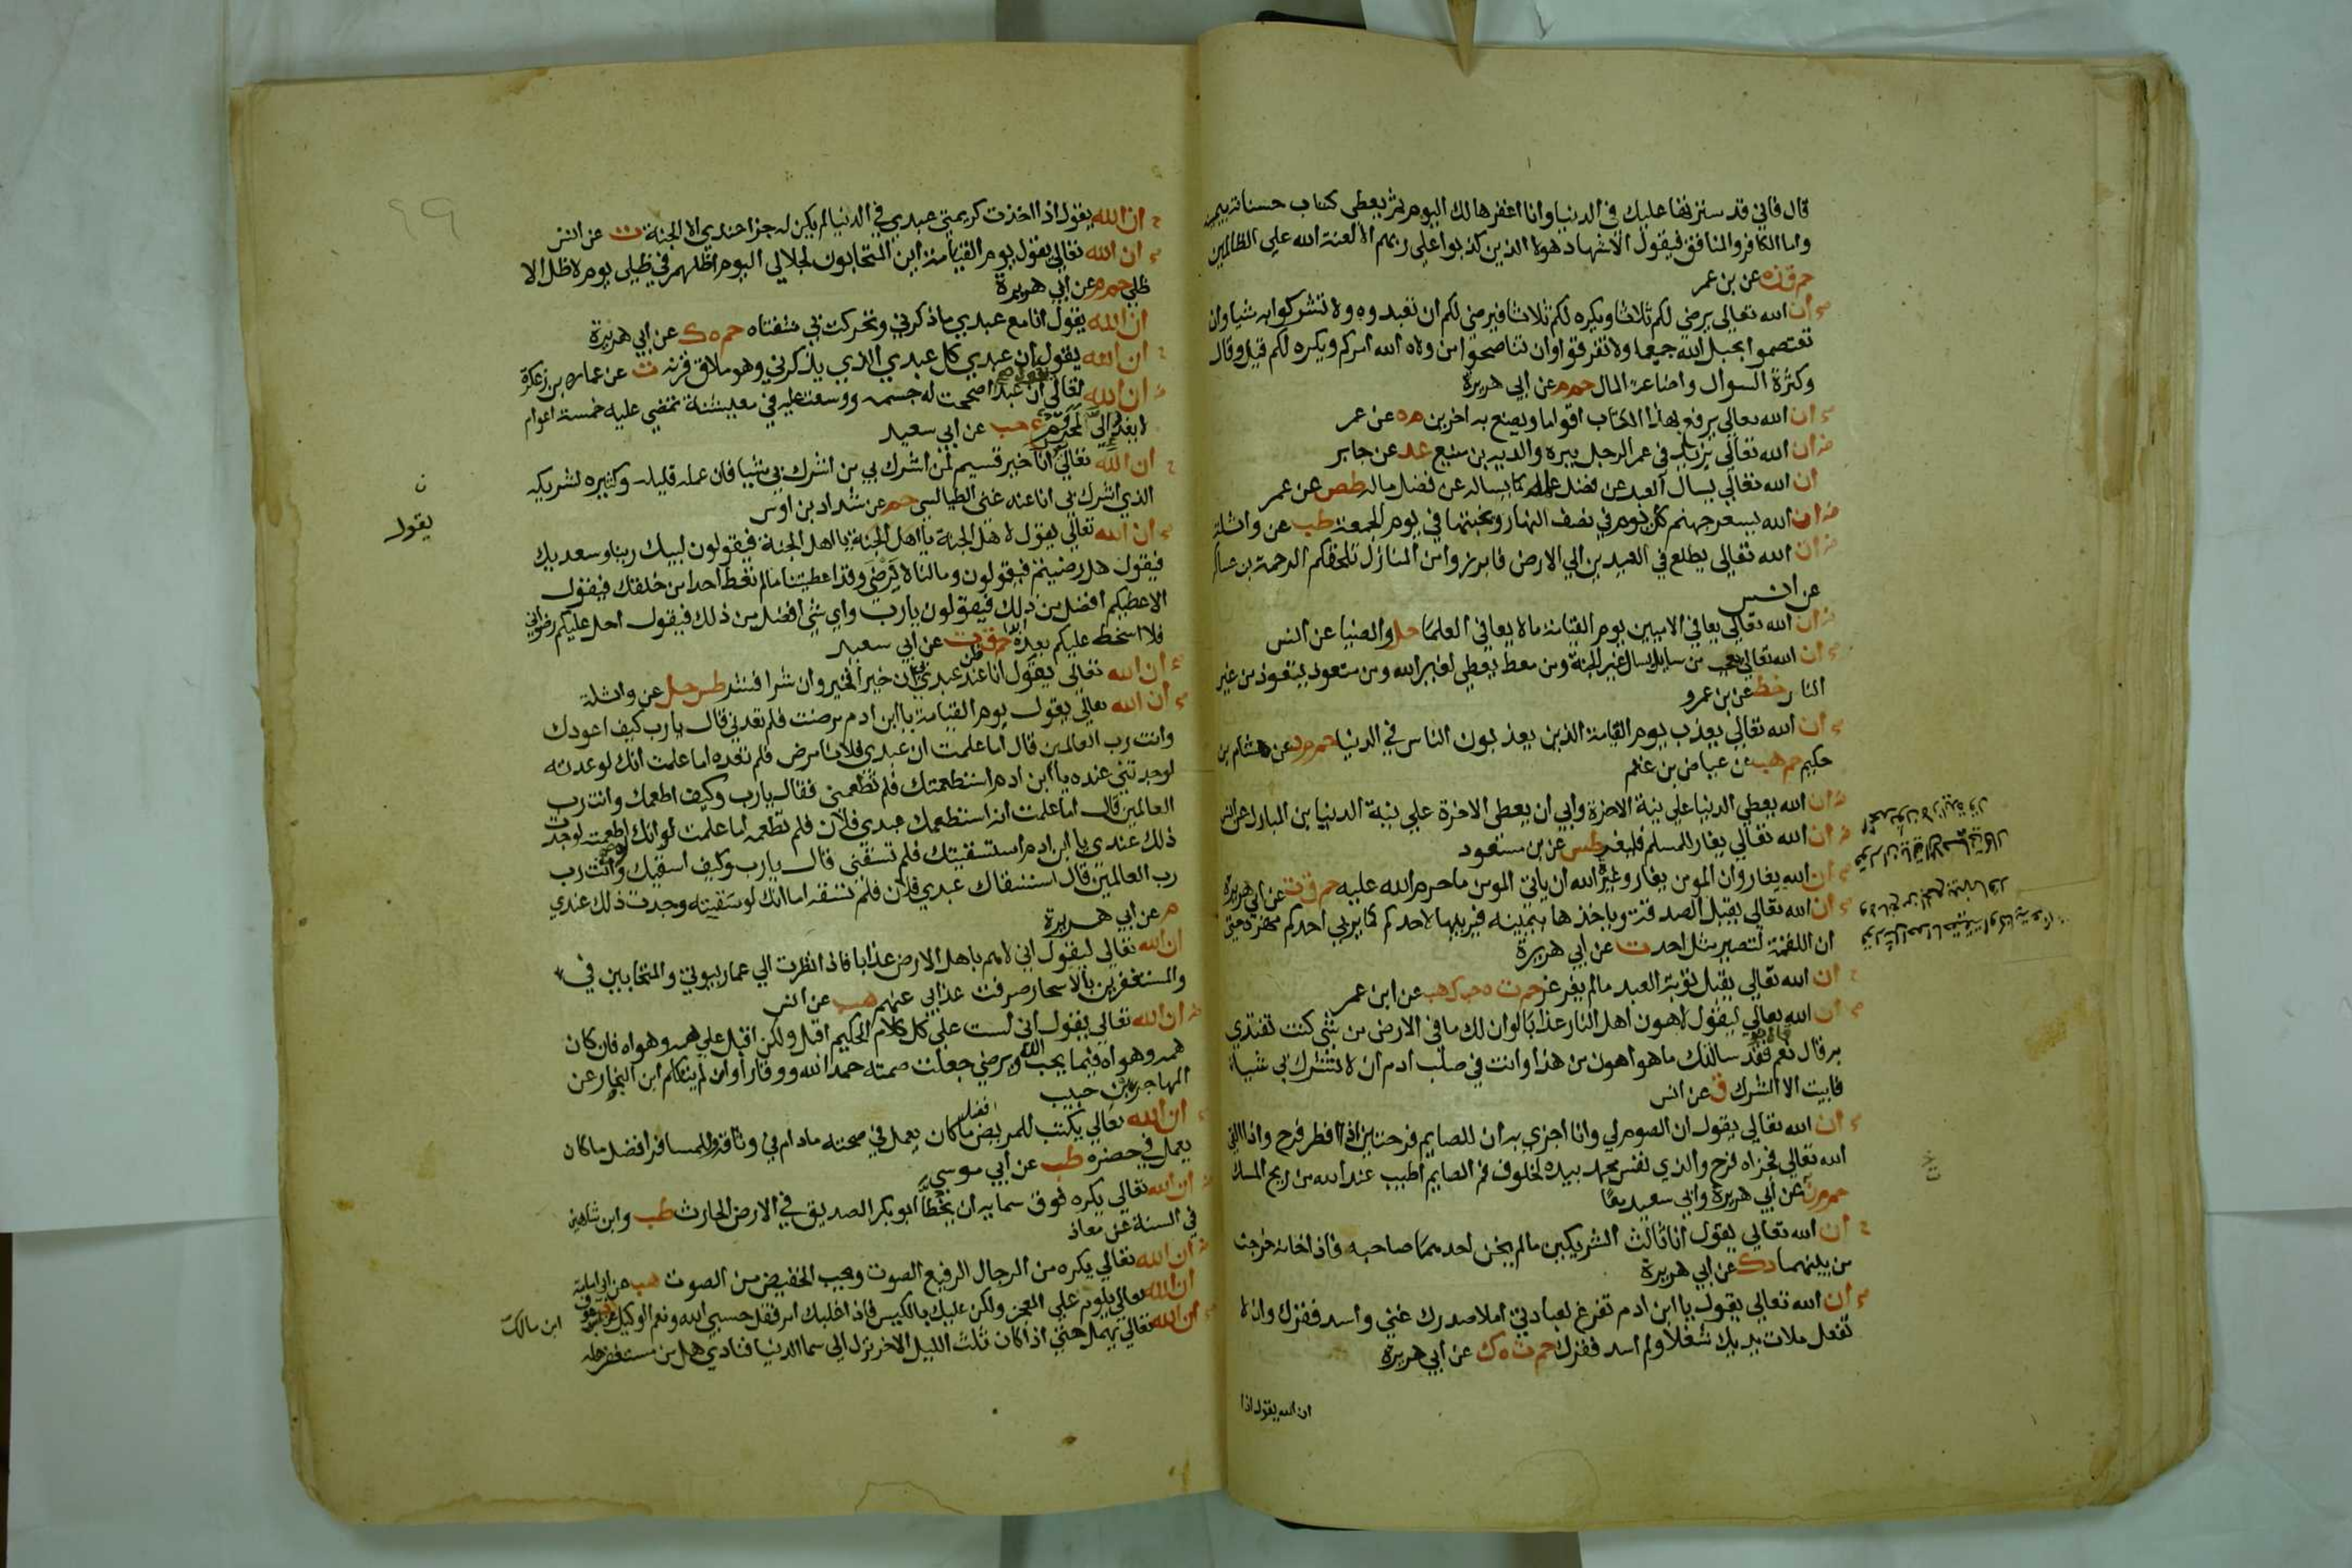 قال فاني قد سترتها عليك في الدنيا وانا اغفرها لك اليوم ثم يعطى كتاب حسناته بيمينه
واما الكافر والمنافق فيقول الاشهاد هولا الذين كذبوا على ربهم الا لعنة الله على الظالمين
حم ق ن ه عن بن عمر
ان الله تعالى يرضى لكم ثلاثا ويكره لكم ثلاثا فيرضى لكم ان تعبدوه ولا تشركوا به شيا وان
تعتصموا بحبل الله جميعا ولا تفرقوا وان تناصحوا من ولاه الله امركم ويكره لكم قيل وقال
وكثرة السوال واضاعة المال حم م عن ابي هريرة
ان الله تعالى يرفع بهذا الكتاب اقواما ويضع به اخرين م ه عن عمر
ان الله تعالى يزيد في عمر الرجل ببره والديه بن منيع عد عن جابر
ان الله تعالى يسال العبد عن فضل علمه كما يساله عن فضل ماله طص عن عمر
ان الله يسعر جهنم كل يوم في نصف النهار ويخبتها في يوم الجمعة طب عن واثلة
ان الله تعالى يطلع في العيدين الي الارض فابرزوا من المنازل تلحقكم الرحمة بن عساكر
عن انس
ان الله تعالى يعافي الاميين يوم القيامة ما لا يعافي العلما حل والضيا عن انس
ان الله تعالى يعجب من سايل يسال غير الجنة ومن معط يعطي لغير الله ومن متعوذ يتعوذ من غير
النار خط عن بن عمرو
ان الله تعالى يعذب يوم القيامة الذين يعذبون الناس في الدنيا حم م د عن هشام بن
حكيم حم هب عن عياض بن غنم
ان الله يعطي الدنيا على نية الاخرة وابي ان يعطي الاخرة على نية الدنيا بن المبارك عن انس
ان الله تعالى يغار للمسلم فليغر طس عن بن مسعود
ان الله يغار وان المومن يغار وغيرة الله ان ياتي المومن ما حرم الله عليه حم ق ت عن ابي هريرة
ان الله تعالى يقبل الصدقة وياخذها بيمينه فيربيها لاحدكم كما يربي احدكم مهره حتى
ان اللقمة لتصير مثل احد ت عن ابي هريرة
ان الله تعالى يقبل توبة العبد ما لم يغرغر حم ت ه حب ك هب عن ابن عمر
ان الله تعالى يقول لاهون اهل النار عذابا لو ان لك ما في الارض من شي كنت تفتدي
به قال نعم فقد سالتك ما هو اهون من هذا وانت في صلب ادم ان لا تشرك بي شيا
فابيت الا الشرك ق عن انس
ان الله تعالى يقول ان الصوم لي وانا اجزي به ان للصايم فرحتين اذا افطر فرح واذا القي
الله تعالى فجزاه فرح والذي نفس محمد بيده لخلوف فم الصايم اطيب عند الله من ريح المسك
حم م ن عن ابي هريرة وابي سعيد معا
ان الله تعالى يقول انا ثالث الشريكين ما لم يخن احدهما صاحبه فاذا خانه خرجت
من بينهما د ك عن ابي هريرة
ان الله تعالى يقول يا ابن ادم تفرغ لعبادتي املا صدرك غني واسد فقرك وان لا
تفعل ملات يديك شغلا ولم اسد فقرك حم ت ه ك عن ابي هريرة
ان الله يقول اذا
ان الله يقول اذا اخذت كريمتي عبدي في الدنيا لم يكن له جزا عندي الا الجنة ت عن انس
ان الله تعالى يقول يوم القيامة اين المتحابون لجلالي اليوم اظلهم في ظلي يوم لا ظل الا
ظلي حم م عن ابي هريرة
ان الله يقول انا مع عبدي ما ذكرني وتحركت بي شفتاه حم ه ك عن ابي هريرة
ان الله يقول ان عبدي كل عبدي الذي يذكرني وهو ملاق قرنه ت عن عمارة بن زعكرة
ان الله تعالى ان عبدا اصححت له جسمه ووسعت عليه في معيشته تمضي عليه خمسة اعوام
لا يفد الي لمحروم ع حب عن ابي سعيد
ان الله تعالى انا خير قسيم لمن اشرك بي من اشرك بي شيا فان عمله قليله وكثيره لشريكه
الذي اشرك بي انا عنه غني الطيالسي حم عن شداد بن اوس
يقول
ان الله تعالى يقول لاهل الجنة يا اهل الجنة فيقولون لبيك ربنا وسعديك
فيقول هل رضيتم فيقولون وما لنا لا نرضى وقد اعطيتنا ما لم تعط احدا من خلقك فيقول
الا اعطيكم افضل من ذلك فيقولون يارب واي شي افضل من ذلك فيقول احل عليكم رضواني
فلا اسخط عليكم بعده ابدا حم ق ت عن ابي سعيد
ان الله تعالى يقول انا عند ظن عبدي بي ان خيرا فخير وان شرا فشر طس حل عن واثلة
ان الله تعالى يقول يوم القيامة يا ابن ادم مرضت فلم تعدني قال يارب كيف اعودك
وانت رب العالمين قال اما علمت ان عبدي فلانا مرض فلم تعده اما علمت انك لو عدته
لوجدتني عنده يا ابن ادم استطعمتك فلم تطعمني فقال يارب وكيف اطعمك وانت رب
العالمين قال اما علمت انه استطعمك عبدي فلان فلم تطعمه اما علمت لو انك اطعمته لوجدت
ذلك عندي يا ابن ادم استسقيتك فلم تسقني قال يارب وكيف اسقيك وانت رب
رب العالمين قال استسقاك عبدي فلان فلم تسقه اما انك لو سقيته وجدت ذلك عندي
م عن ابي هريرة
ان الله تعالى ليقول اني لاهم باهل الارض عذابا فاذا نظرت الي عمار بيوتي والمتحابين في
والمستغفرين بالاسحار صرفت عذابي عنهم هب عن انس
ان الله تعالى يقول اني لست على كل كلام الحكيم اقبل ولكن اقبل على همه وهواه فان كان
همه وهواه فيما يحب الله ويرضى جعلت صمته حمدا لله ووقارا وان لم يتكلم ابن النجار عن
المهاجر بن حبيب
ان الله تعالى يكتب للمريض افضل ما كان يعمل في صحته ما دام في وثاقه وللمسافر افضل ما كان
يعمل في حضره طب عن ابي موسى
ان الله تعالى يكره فوق سمايه ان يخطا ابو بكر الصديق في الارض الحارث طب وابن شاهين
في السنة عن معاذ
ان الله تعالى يكره من الرجال الرفيع الصوت ويحب الخفيض من الصوت هب عن ابي امامة
ان الله تعالى يلوم على العجز ولكن عليك بالكيس فاذا غلبك امر فقل حسبي الله ونعم الوكيل
ابن مالك
ان الله تعالى يمهل حتى اذا كان ثلث الليل الاخر نزل الي سما الدنيا فنادي هل من مستغفر